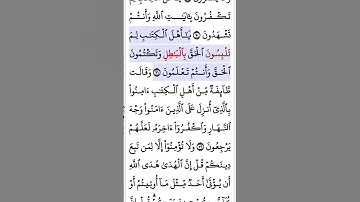 تَكْفُرُونَ بِـَٔايَـٰتِ ٱللَّهِ وَأَنتُمْ
تَشْهَدُونَ ٧٠ يَـٰٓأَهْلَ ٱلْكِتَـٰبِ لِمَ
تَلْبِسُونَ ٱلْحَقَّ بِٱلْبَـٰطِلِ وَتَكْتُمُونَ
ٱلْحَقَّ وَأَنتُمْ تَعْلَمُونَ ٧١ وَقَالَت
طَّآئِفَةٌ مِّنْ أَهْلِ ٱلْكِتَـٰبِ ءَامِنُوا۟
بِٱلَّذِىٓ أُنزِلَ عَلَى ٱلَّذِينَ ءَامَنُوا۟ وَجْهَ
ٱلنَّهَارِ وَٱكْفُرُوٓا۟ ءَاخِرَهُۥ لَعَلَّهُمْ
يَرْجِعُونَ ٧٢ وَلَا تُؤْمِنُوٓا۟ إِلَّا لِمَن تَبِعَ
دِينَكُمْ قُلْ إِنَّ ٱلْهُدَىٰ هُدَى ٱللَّهِ
أَن يُؤْتَىٰٓ أَحَدٌ مِّثْلَ مَآ أُوتِيتُمْ أَوْ